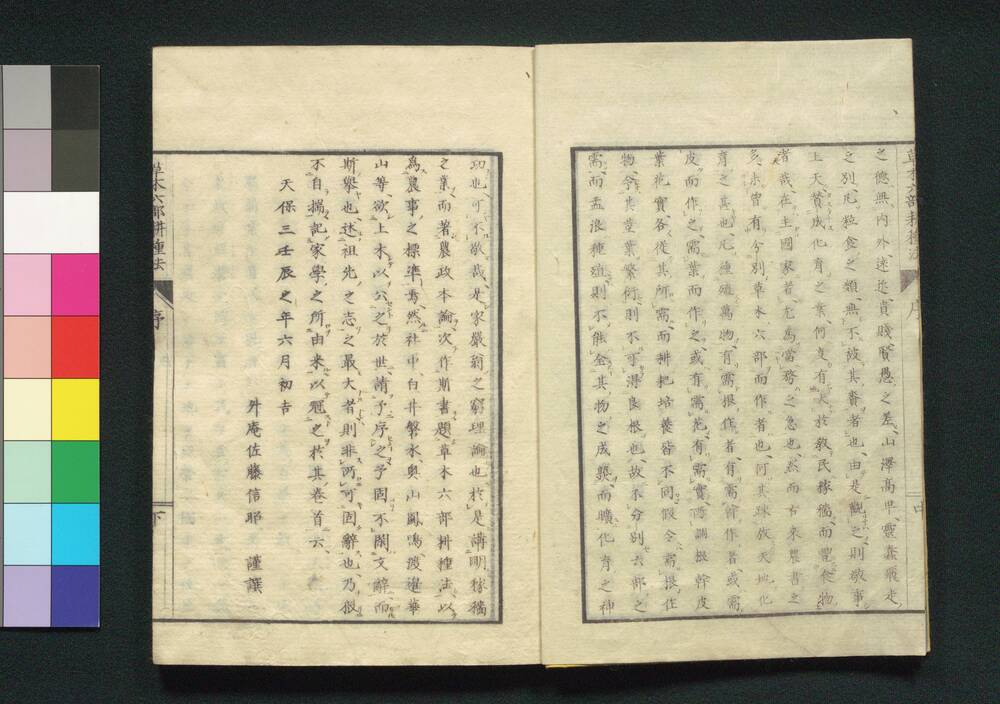 之德無內外迷迯貴賤賢愚之差山澤高卑靈蠢飛走
之別凡粒食之類無不鼓其養者也由是觀之則敬事
上天賛成化育之業何支有大於敎民稼穡而豐食物
者哉在主國家者尤爲當務之急也然而古來農書之
多未曾有分別草木六部而作者也何其疎放天地化
育之甚也凡種殖萬物有需根作者有需幹作者或需
皮而作之需葉而作之或有需花有需實
葉花實各從其所需而耕耙培養皆不同假令需根徃
物令其莖葉繁衍則不可得良根也故不分別六部之
需而孟浪種殖則不能全其物之成製而曠化育之神
功也可不敬哉是家嚴翁之窮理論也於是講明稼穡
之業而著農政本論次作斯書題草木六部耕種法以
爲農事之標準焉然社中白井繁水奧山鳳鳴渡邊華
山等欲上木以公之於世請予序之予固不閑文辭而
斯擧也述祖先之志之最大者則非所可固辭也乃很
不自揣記家學之所由來以冠之於其卷首云
天保三壬辰之年六月初吉
舛庵佐藤信昭 謹譔
草木六部耕種法
序
下